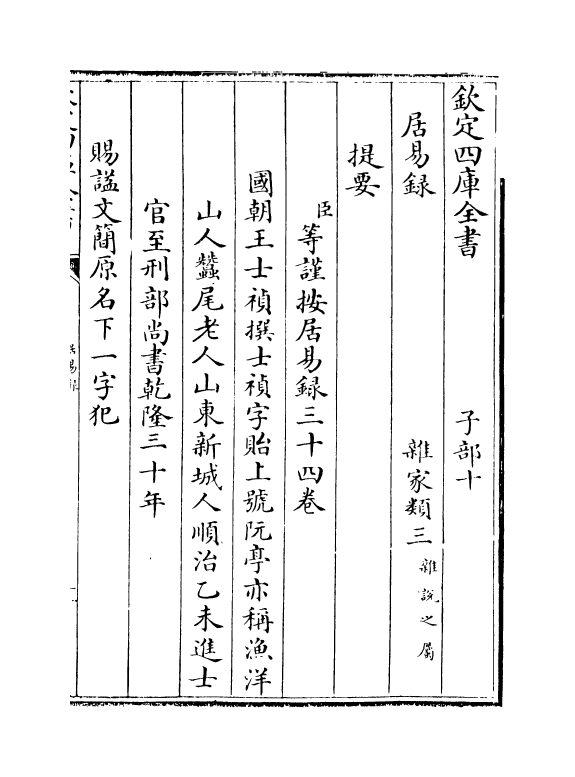 欽定四庫全書　子部十
居易録　雜家類三雜説之屬
提要
臣等謹按居易録三十四卷
國朝王士禎撰士禎字貽上號阮亭亦稱漁洋
山人蠶尾老人山東新城人順治乙未進士
官至刑部尚書乾隆三十年
賜諡文簡原名下一字犯